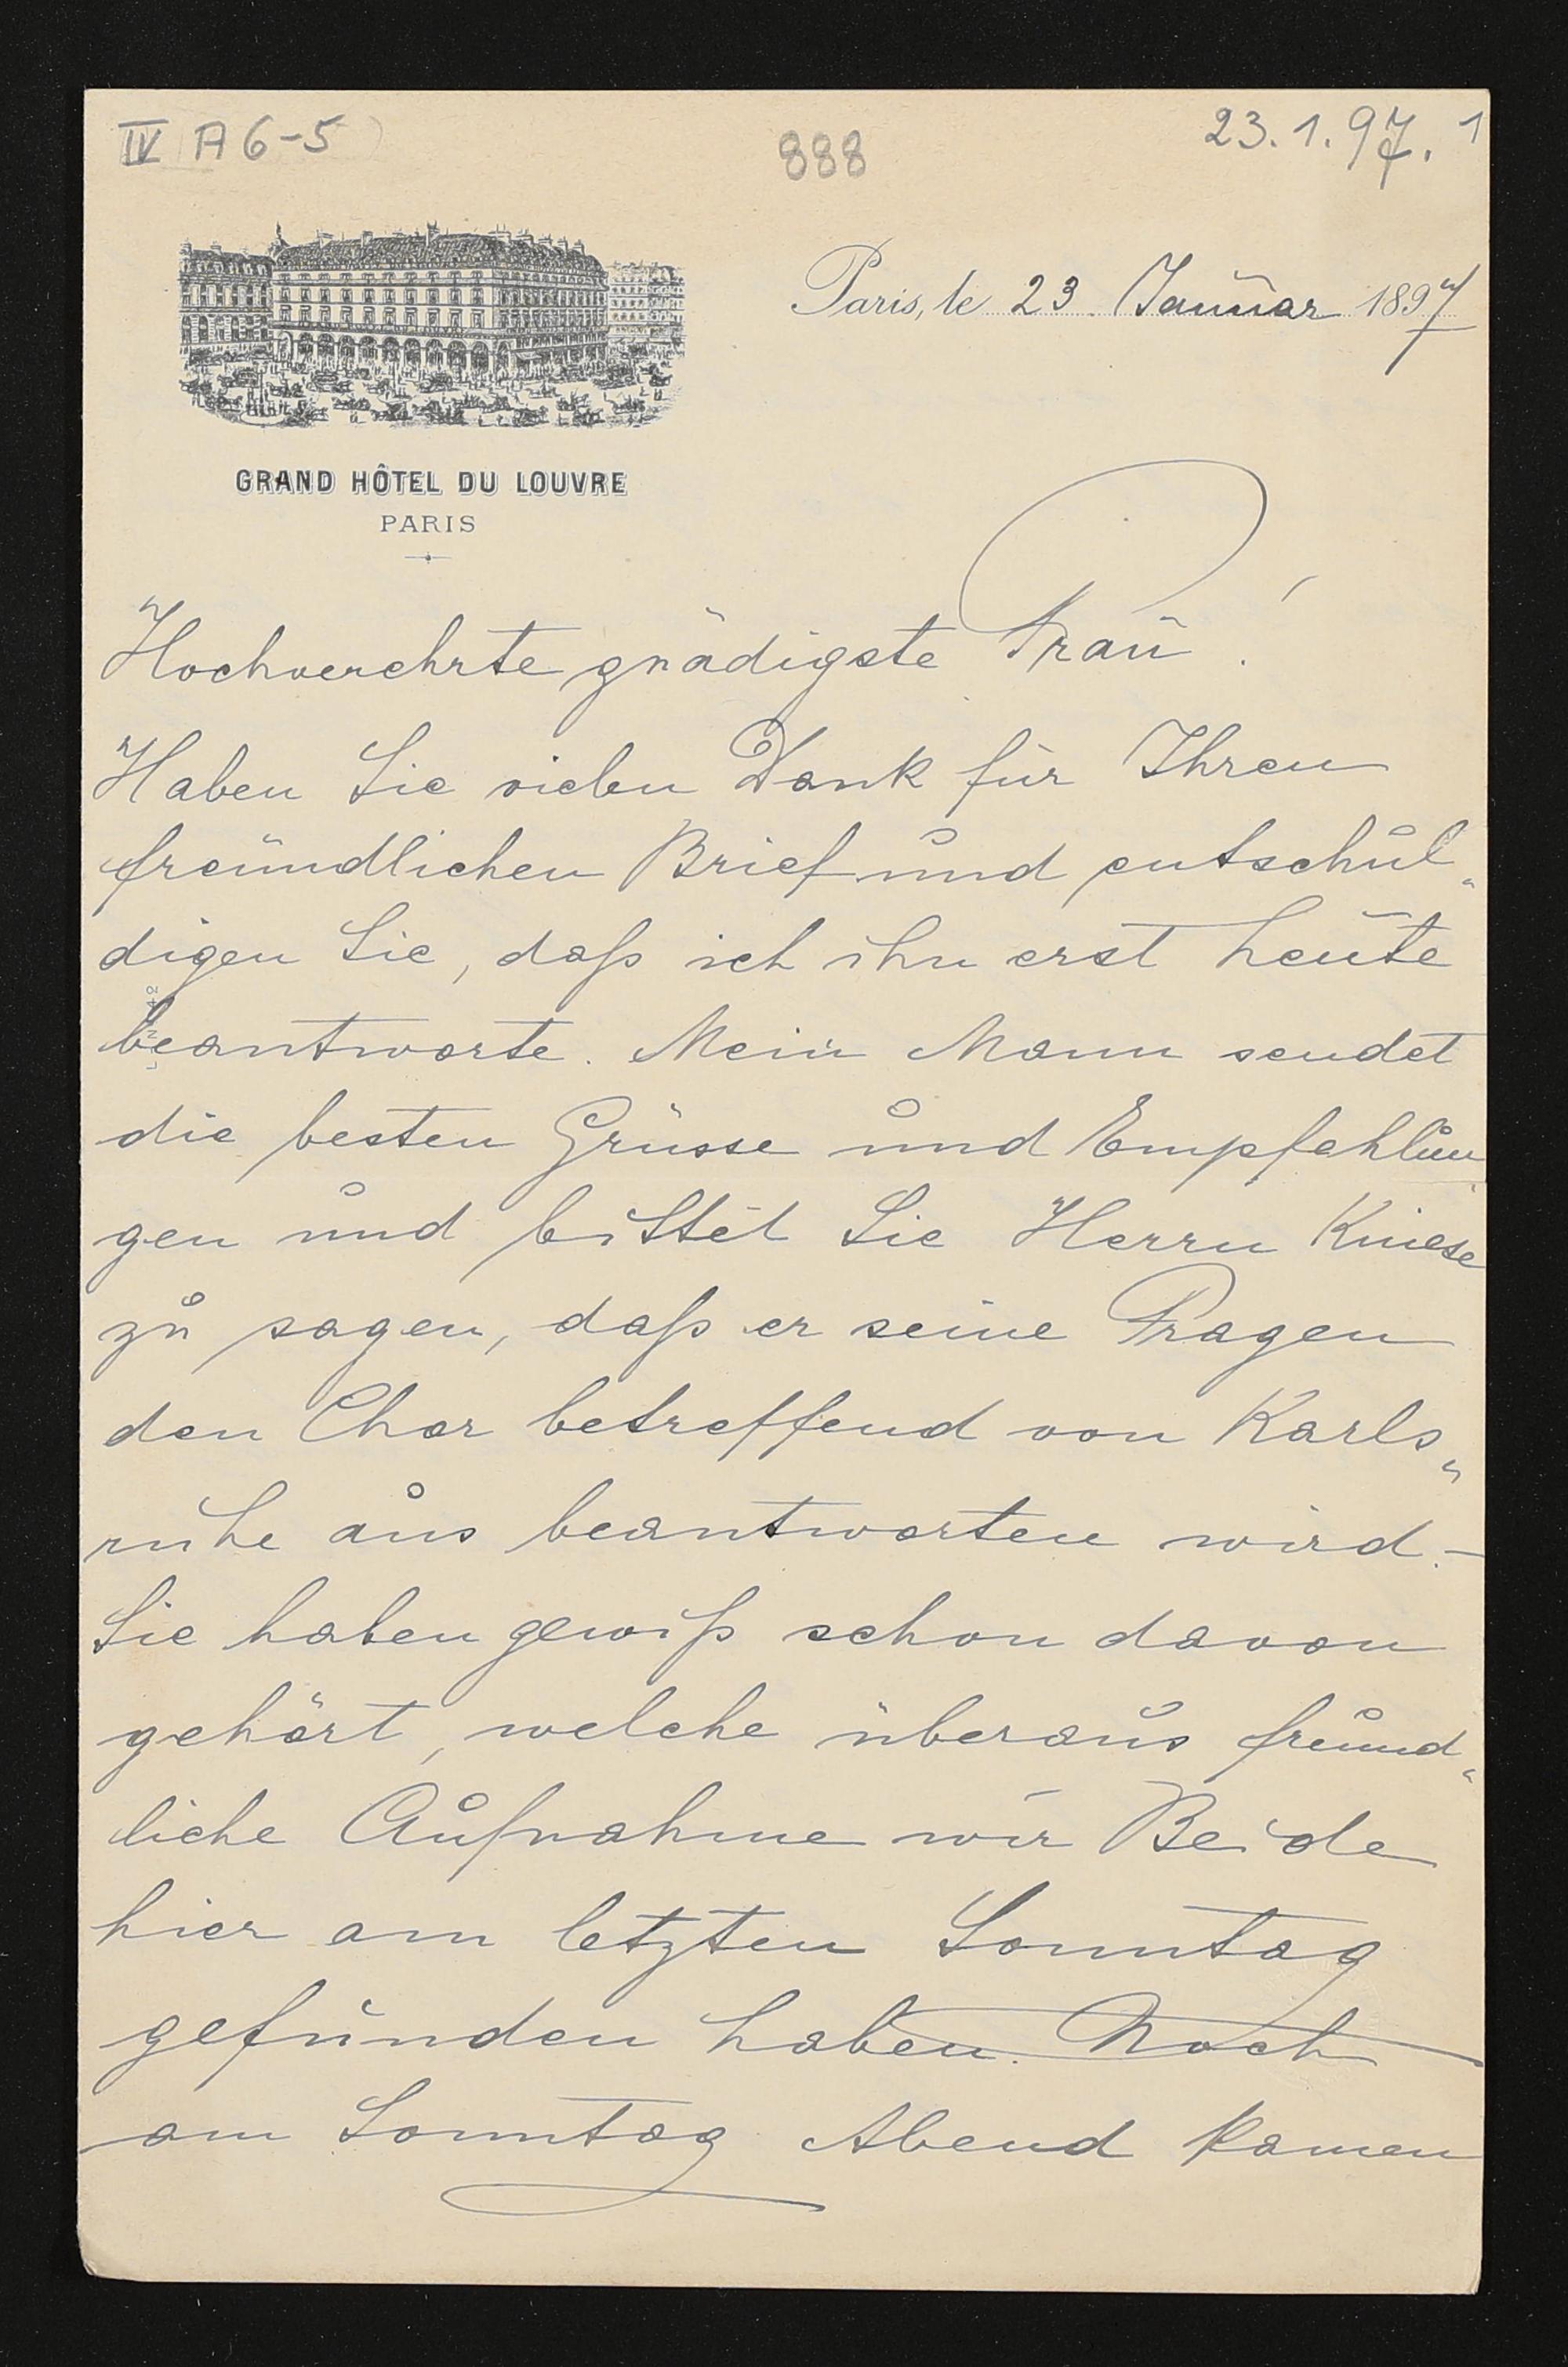 IV A 6-5
888
23.1.97. 1
Paris, le 23. Januar 1897
GRAND HÔTEL DU LOUVRE
PARIS
Hochverehrte gnädigste Frau!
Haben Sie vielen Dank für Ihren
freundlichen Brief und entschul„
digen Sie, daß ich ihn erst heute
beantworte. Mein Mann sendet
die besten Grüsse und Empfehlun„
gen und bittet Sie Herrn Kniese
zu sagen, daß er seine Fragen
den Chor betreffend von Karls„
ruhe aus beantworten wird. –
Sie haben gewiß schon davon
gehört, welche überaus freund„
liche Aufnahme wir Beide
hier am letzten Sonntag
gefunden haben. Noch
am Sonntag Abend kamen